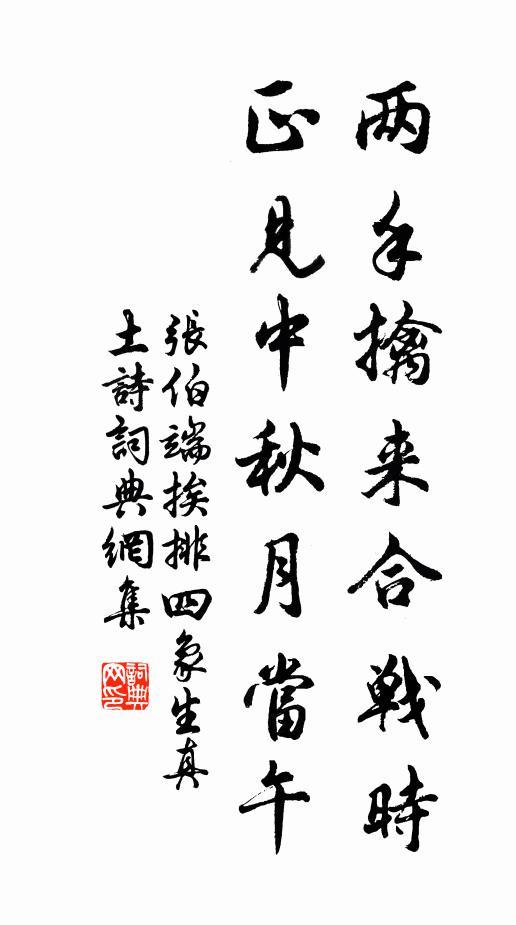 两手擒来合戦時
正見中秋月當午
張伯端挨排四象生真
土詩詞典網集
詞典网印